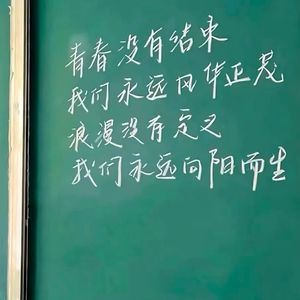 青春没有结束
我们永远风华正茂
浪漫没有定义
我们永远向阳而生